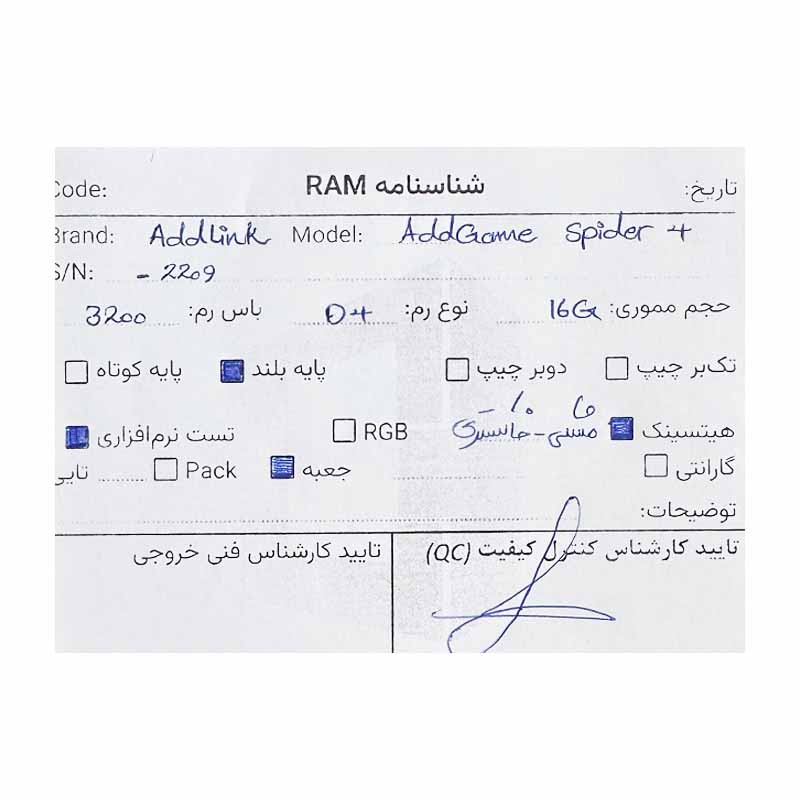 Code: شناسنامه RAM تاریخ:
Brand: AddLink Model: AddGame Spider 4
S/N: - 2209
حجم مموری: 16G نوع رم: D4 باس رم: 3200
تک‌بر چیپ دوبر چیپ پایه بلند پایه کوتاه
هیتسینک مشکی - خاکستری RGB تست نرم‌افزاری
گارانتی جعبه Pack تایی
توضیحات:
تایید کارشناس کنترل کیفیت (QC) تایید کارشناس فنی خروجی